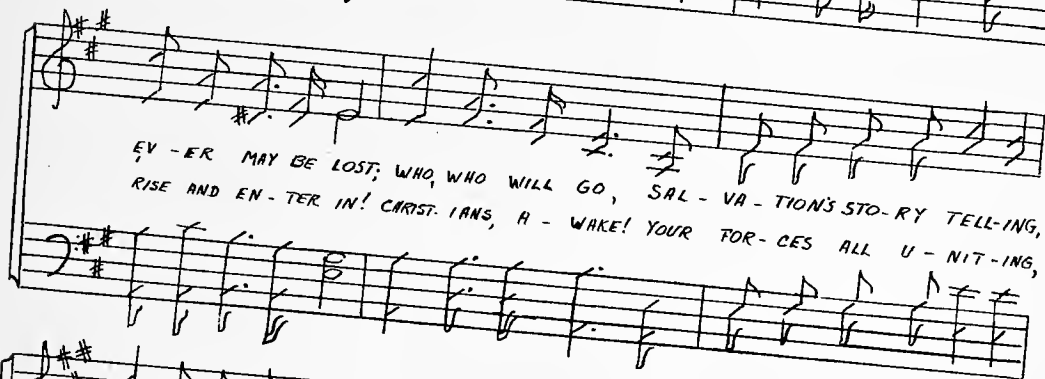 EV - ER MAY BE LOST; WHO, WHO WILL GO, SAL - VA - TION'S STO - RY TELL - ING,
RISE AND EN - TER IN! CHRIST - IANS, A - WAKE! YOUR FOR - CES ALL U - NIT - ING,